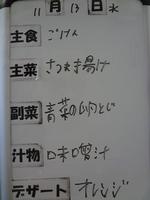 11月13日水
主食 ごはん
主菜 さつま揚げ
副菜 青菜の卵とじ
汁物 味噌汁
デザート オレンジ